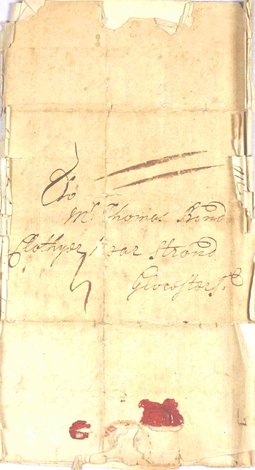 To
Mr Thomas Kind
Clothyer near Stroud
Glocoster